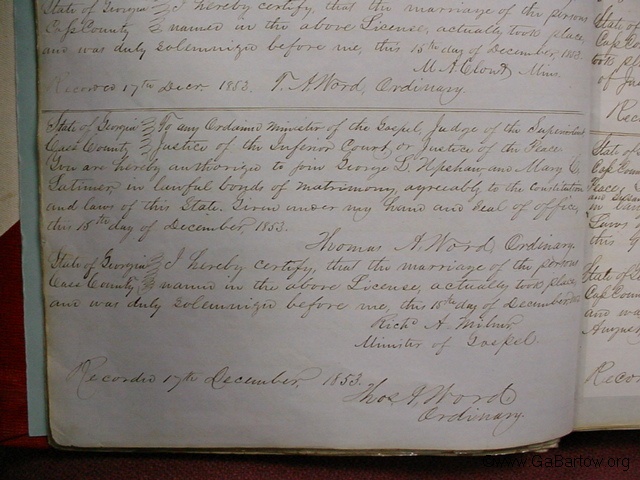 State of Georgia I hereby certify, that the marriage of the persons
Cass County named in the above License, actually took place,
and was duly solemnized before me, this 15th day of December, 1853.
M A Clowd, Min.
Recorded 17th Decr. 1853. T. A Word, Ordinary.
State of Georgia To any Ordained Minister of the Gospel, Judge of the Superior Court
Cass County Justice of the Inferior Court, or Justice of the Peace
You are hereby authorized to join George L. Upshaw and Mary E.
Latimer, in lawful bonds of matrimony, agreeably to the Constitution
and laws of this State. Given under my hand and seal of office,
this 15th day of December 1853.
Thomas A. Word Ordinary.
State of Georgia I hereby certify, that the marriage of the persons
Cass County, named in the above License, actually took place,
and was duly solemnized before me, this 15th day of December,
Richd A. Milner
Minister of Gospel.
Recorded 17th December, 1853.
Thos A, Word
Ordinary.
State of
Cass County
took pl
of Ja
Re
State of
Cass County
Peace
in law
Laws of
this
State of
Cass County
and wa
August
Recor
www.GaBartow.org